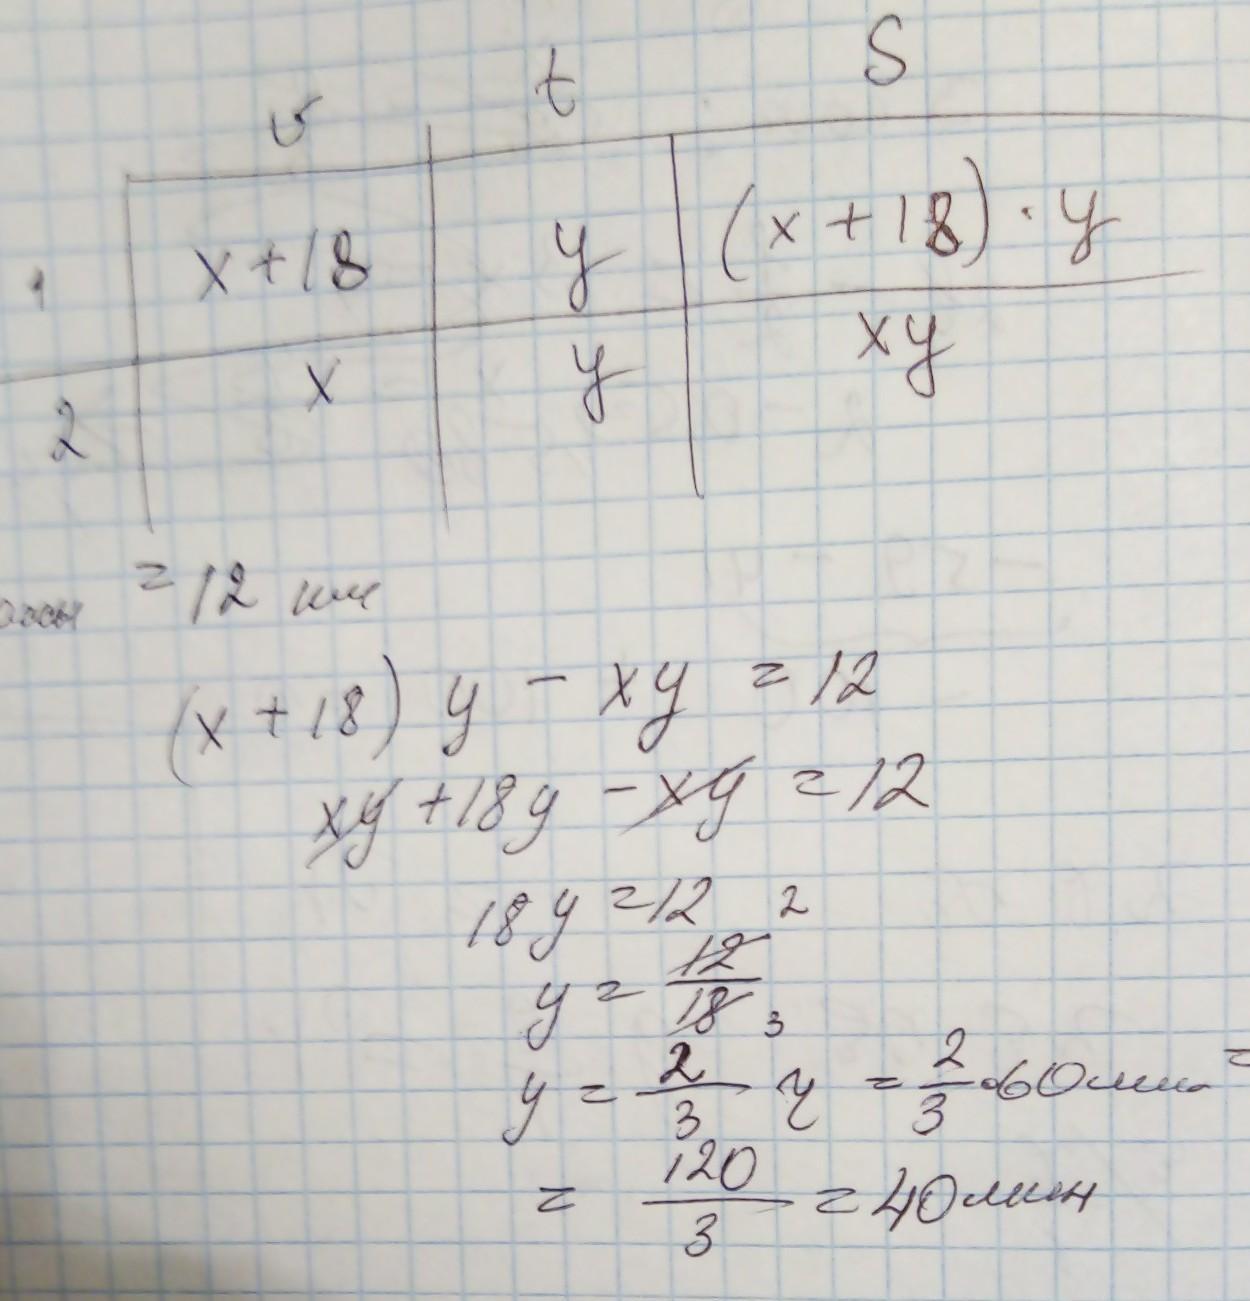 v t S
1 x+18 y (x+18)·y
2 x y xy
= 12 км
(x+18) y - xy = 12
xy + 18y - xy = 12
18y = 12
y = 12/18 2 3
y = 2/3 ч = 2/3 · 60 мин =
= 120/3 = 40 мин